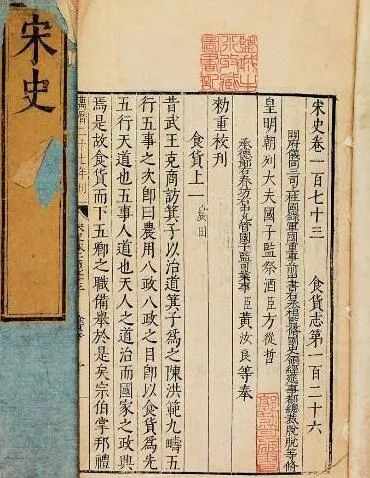 宋史
宋史卷一百七十三　食貨志第一百二十六
開府儀同三司上柱國錄軍國重事前中書右丞相監修國史領經筵事都總裁脫脫等修
皇明朝列大夫國子監祭酒臣方從哲
承德郎右春坊右中允管國子監司業事臣黃汝良等奉
勑重校刊
食貨上一 農田
昔武王克商訪箕子以治道箕子爲之陳洪範九疇五
行五事之次卽曰農用八政八政之目卽以食貨爲先
五行天道也五事人道也天人之道治而國家之政興
焉是故食貨而下五卿之職備舉於是矣宗伯掌邦禮